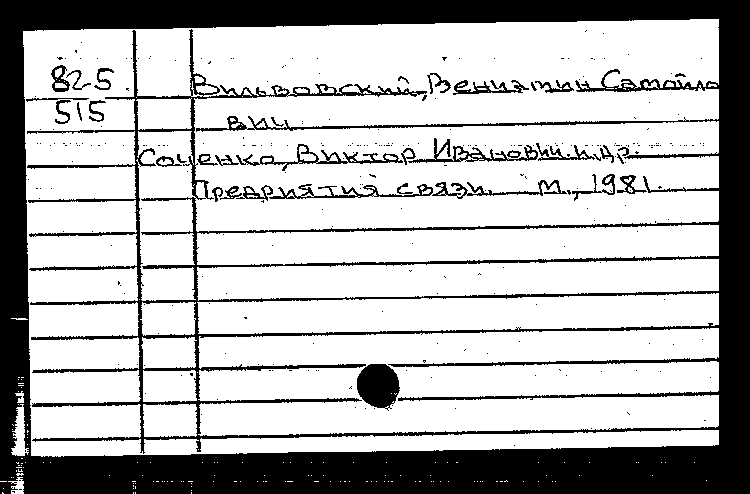 825
515
Вильвовский, Вениамин Самойло
вич
Соченко, Виктор Иванович и др.
Предриятия связи. М., 1981.